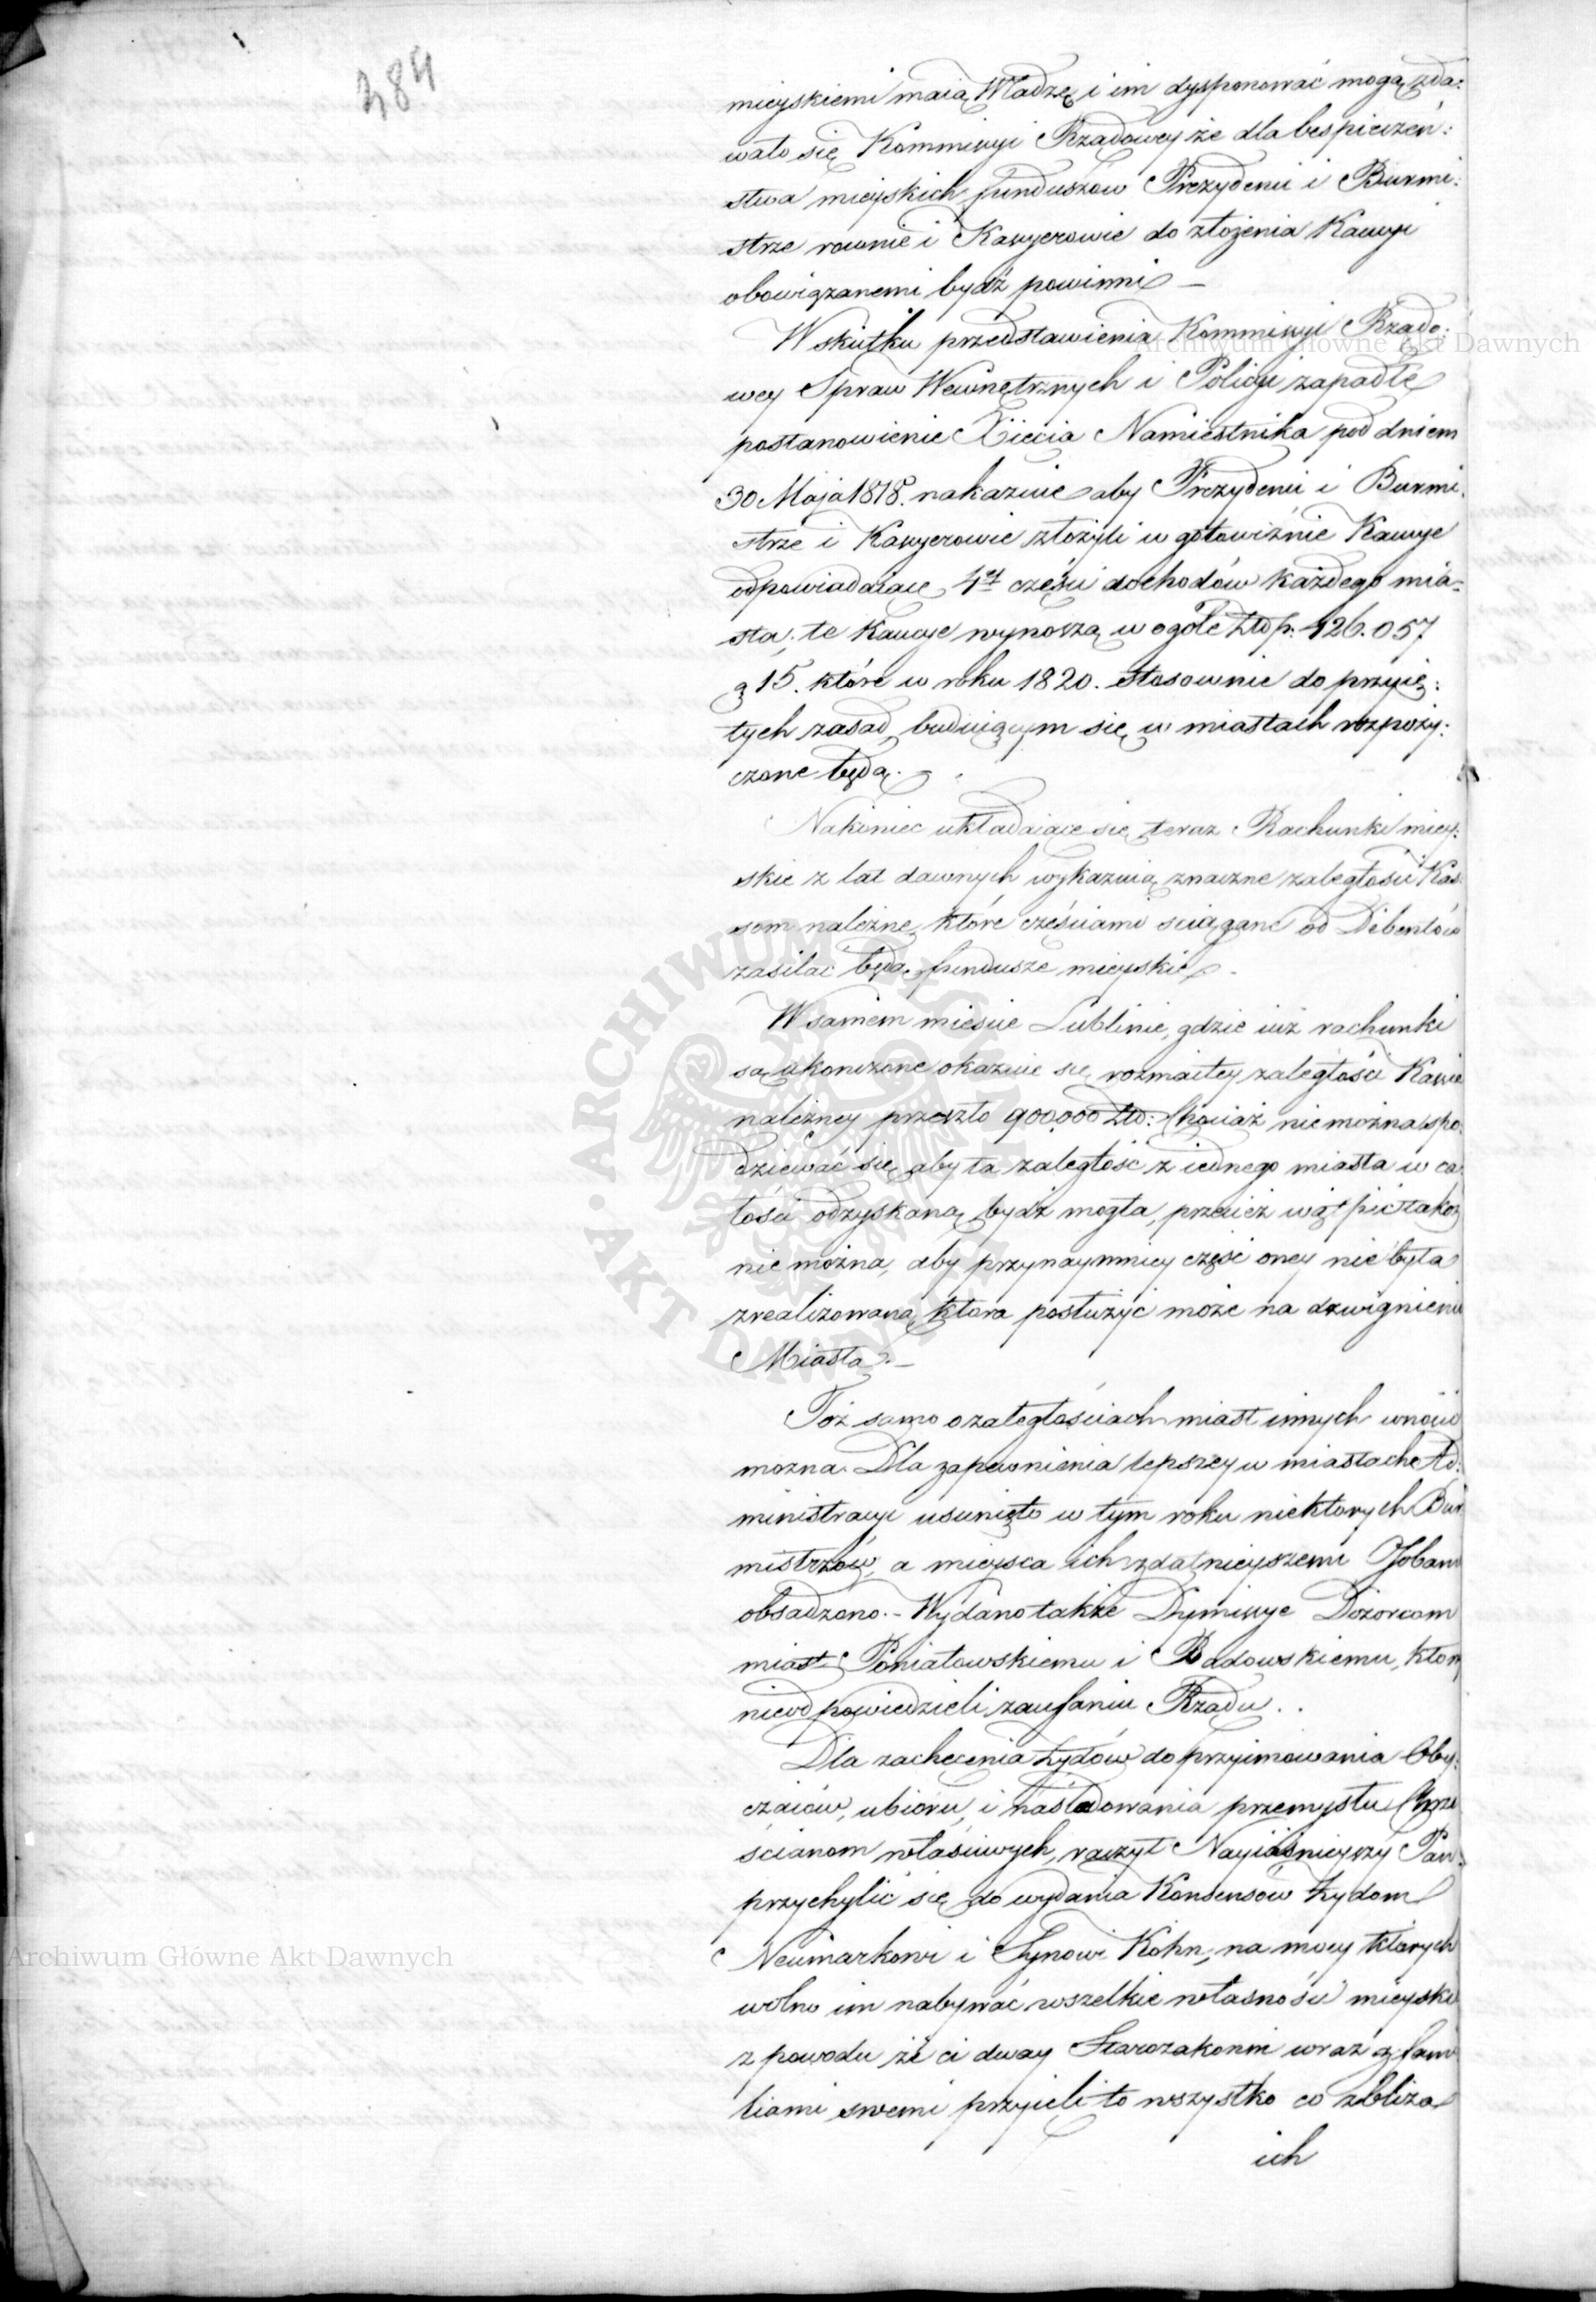 484
mieyskiemi maią Władzę i im dysponować mogą, zda:
wało się Kommissyi Rządowey że dla bespieczeń:
stwa mieyskich funduszów Prezydenci i Burmi:
strze rownie i Kassyerowie do złożenia Kaucyi
obowiązanemi bydź powinni –
W skutku przedstawienia Kommissyi Rządo:
wey Spraw Wewnętrznych i Policyi zapadłe
postanowienie Xięcia Namiestnika pod dniem
30 Maja 1818. nakazuie aby Prezydenci i Burmi:
strze i Kassyerowie złożyli w gotowiznie Kaucye
odpowiadaiące 4ey części dochodów każdego mia:
sta; te Kaucye wynoszą w ogóle Złłp. 426.057
g 15. które w roku 1820. stosownie do przyię:
tych zasad, buduiącym się w miastach rozpoży:
czone będą.
Nakoniec układaiące się teraz Rachunki miey:
skie z lat dawnych wykazuią znaczne zaległości Kas:
som należne, które częściami sciągane od Debentów
zasilac będą fundusze mieyskie –
W samem miescie Lublinie, gdzie iuż rachunki
są ukonczone okazuie się rozmaitey zaległości Kassie
należney przeszło 900,000 Złł: Chociaż nie można spo:
dziewać się, aby ta zaległość z iednego miasta w ca
łości odzyskaną bydź mogła, przeciéż wątpić także
nie można, aby przynaymniey część oney nie była
zrealizowaną, ktora posłużyć może na dzwignienie
Miasta. –
Toż samo o zaległościach miast innych wnosić
mozna. Dla zapewnienia lepszey w miastach Ad:
ministracyi usunięto w tym roku niektorych Bur
mistrzów, a mieysca ich zdatnieyszemi Osobami
obsadzono. – Wydano także Dymissye Dozorcom
miast Poniatowskiemu i Badowskiemu, ktorzy
nieodpowiedzieli zaufaniu Rządu. .
Dla zachęcenia Żydów do przyimowania Oby:
czaiów, ubioru, i naśladowania przemysłu Chrze
ścianom właściwych, raczył Nayiaśnieyszy Pan
przychylić się do wydania Konsensów Żydom
Neumarkowi i Synowi Kohn, na mocy których
wolno im nabywać wszelkie własności mieyskie
z powodu że ci dway Starozakonni wraz z fami
liami swemi przyieli to wszystko co zbliża
ich
Archiwum Główne Akt Dawnych
Archiwum Główne Akt Dawnych
ARCHIWUM GŁÓWNE AKT DAWNYCH